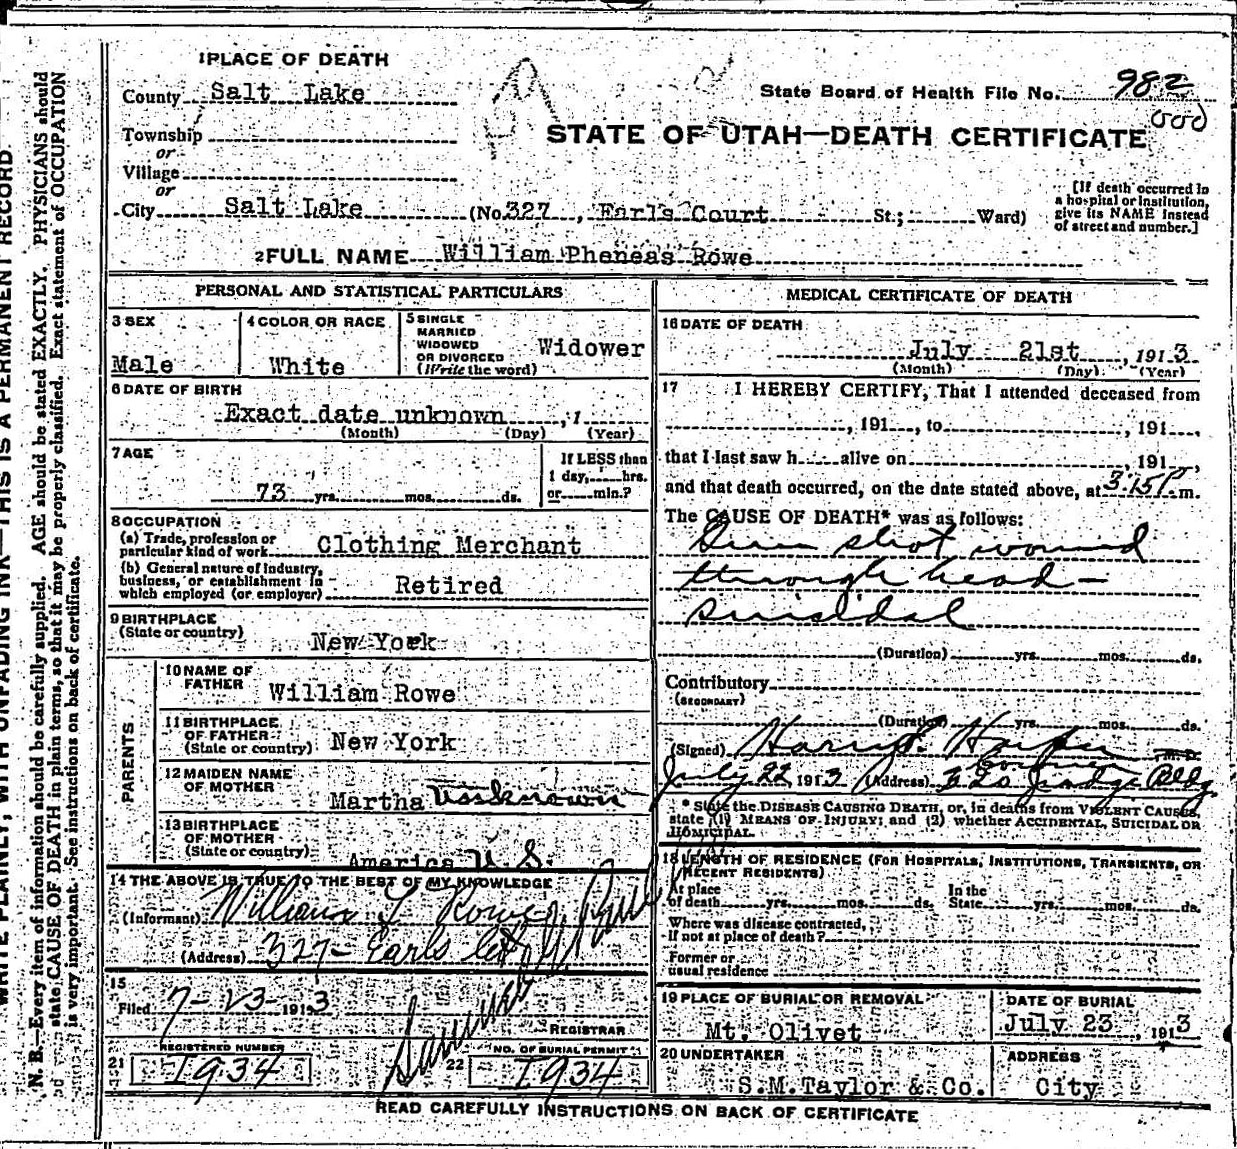 1 PLACE OF DEATH
County Salt Lake
State Board of Health File No. 982
000
Township
or
STATE OF UTAH—DEATH CERTIFICATE
Village
or
City Salt Lake (No. 327, Earls Court St.; Ward)
[If death occurred in a hospital or institution, give its NAME instead of street and number.]
2 FULL NAME William Pheneas Rowe
PERSONAL AND STATISTICAL PARTICULARS
3 SEX
Male
4 COLOR OR RACE
White
5 SINGLE
MARRIED
WIDOWED
OR DIVORCED
(Write the word)
Widower
6 DATE OF BIRTH
Exact date unknown, 1
(Month) (Day) (Year)
7 AGE
73 yrs. mos. ds.
If LESS than
1 day, hrs.
or min.?
8 OCCUPATION
(a) Trade, profession or
particular kind of work Clothing Merchant
(b) General nature of industry,
business, or establishment in
which employed (or employer) Retired
9 BIRTHPLACE
(State or country) New York
PARENTS
10 NAME OF
FATHER William Rowe
11 BIRTHPLACE
OF FATHER
(State or country) New York
12 MAIDEN NAME
OF MOTHER Martha Unknown
13 BIRTHPLACE
OF MOTHER
(State or country) America U. S.
14 THE ABOVE IS TRUE TO THE BEST OF MY KNOWLEDGE
(Informant) William L Rowe
(Address) 327- Earls Ct
15
Filed 7-23-1913
REGISTRAR
21 REGISTERED NUMBER
1934
22 NO. OF BURIAL PERMIT
1934
MEDICAL CERTIFICATE OF DEATH
16 DATE OF DEATH
July 21st, 1913
(Month) (Day) (Year)
17 I HEREBY CERTIFY, That I attended deceased from
, 191 , to , 191 ,
that I last saw h alive on , 191 ,
and that death occurred, on the date stated above, at 3:15 P. m.
The CAUSE OF DEATH* was as follows:
Gun shot wound
through head—
suicidal
(Duration) yrs. mos. ds.
Contributory
(SECONDARY)
(Duration) yrs. mos. ds.
(Signed) Harry S. Harper M. D.
Coroner
July 22, 1913 (Address) 320 Judge Bldg.
* State the DISEASE CAUSING DEATH, or, in deaths from VIOLENT CAUSES,
state (1) MEANS OF INJURY; and (2) whether ACCIDENTAL, SUICIDAL OR
HOMICIDAL.
18 LENGTH OF RESIDENCE (FOR HOSPITALS, INSTITUTIONS, TRANSIENTS, OR
RECENT RESIDENTS)
At place
of death yrs. mos. ds.
In the
State yrs. mos. ds.
Where was disease contracted,
If not at place of death?
Former or
usual residence
19 PLACE OF BURIAL OR REMOVAL
Mt. Olivet
DATE OF BURIAL
July 23, 1913
20 UNDERTAKER
S.M.Taylor & Co.
ADDRESS
City
READ CAREFULLY INSTRUCTIONS ON BACK OF CERTIFICATE
WRITE PLAINLY, WITH UNFADING INK—THIS IS A PERMANENT RECORD
N. B.—Every item of information should be carefully supplied. AGE should be stated EXACTLY. PHYSICIANS should
state CAUSE OF DEATH in plain terms, so that it may be properly classified. Exact statement of OCCUPATION
is very important. See instructions on back of certificate.